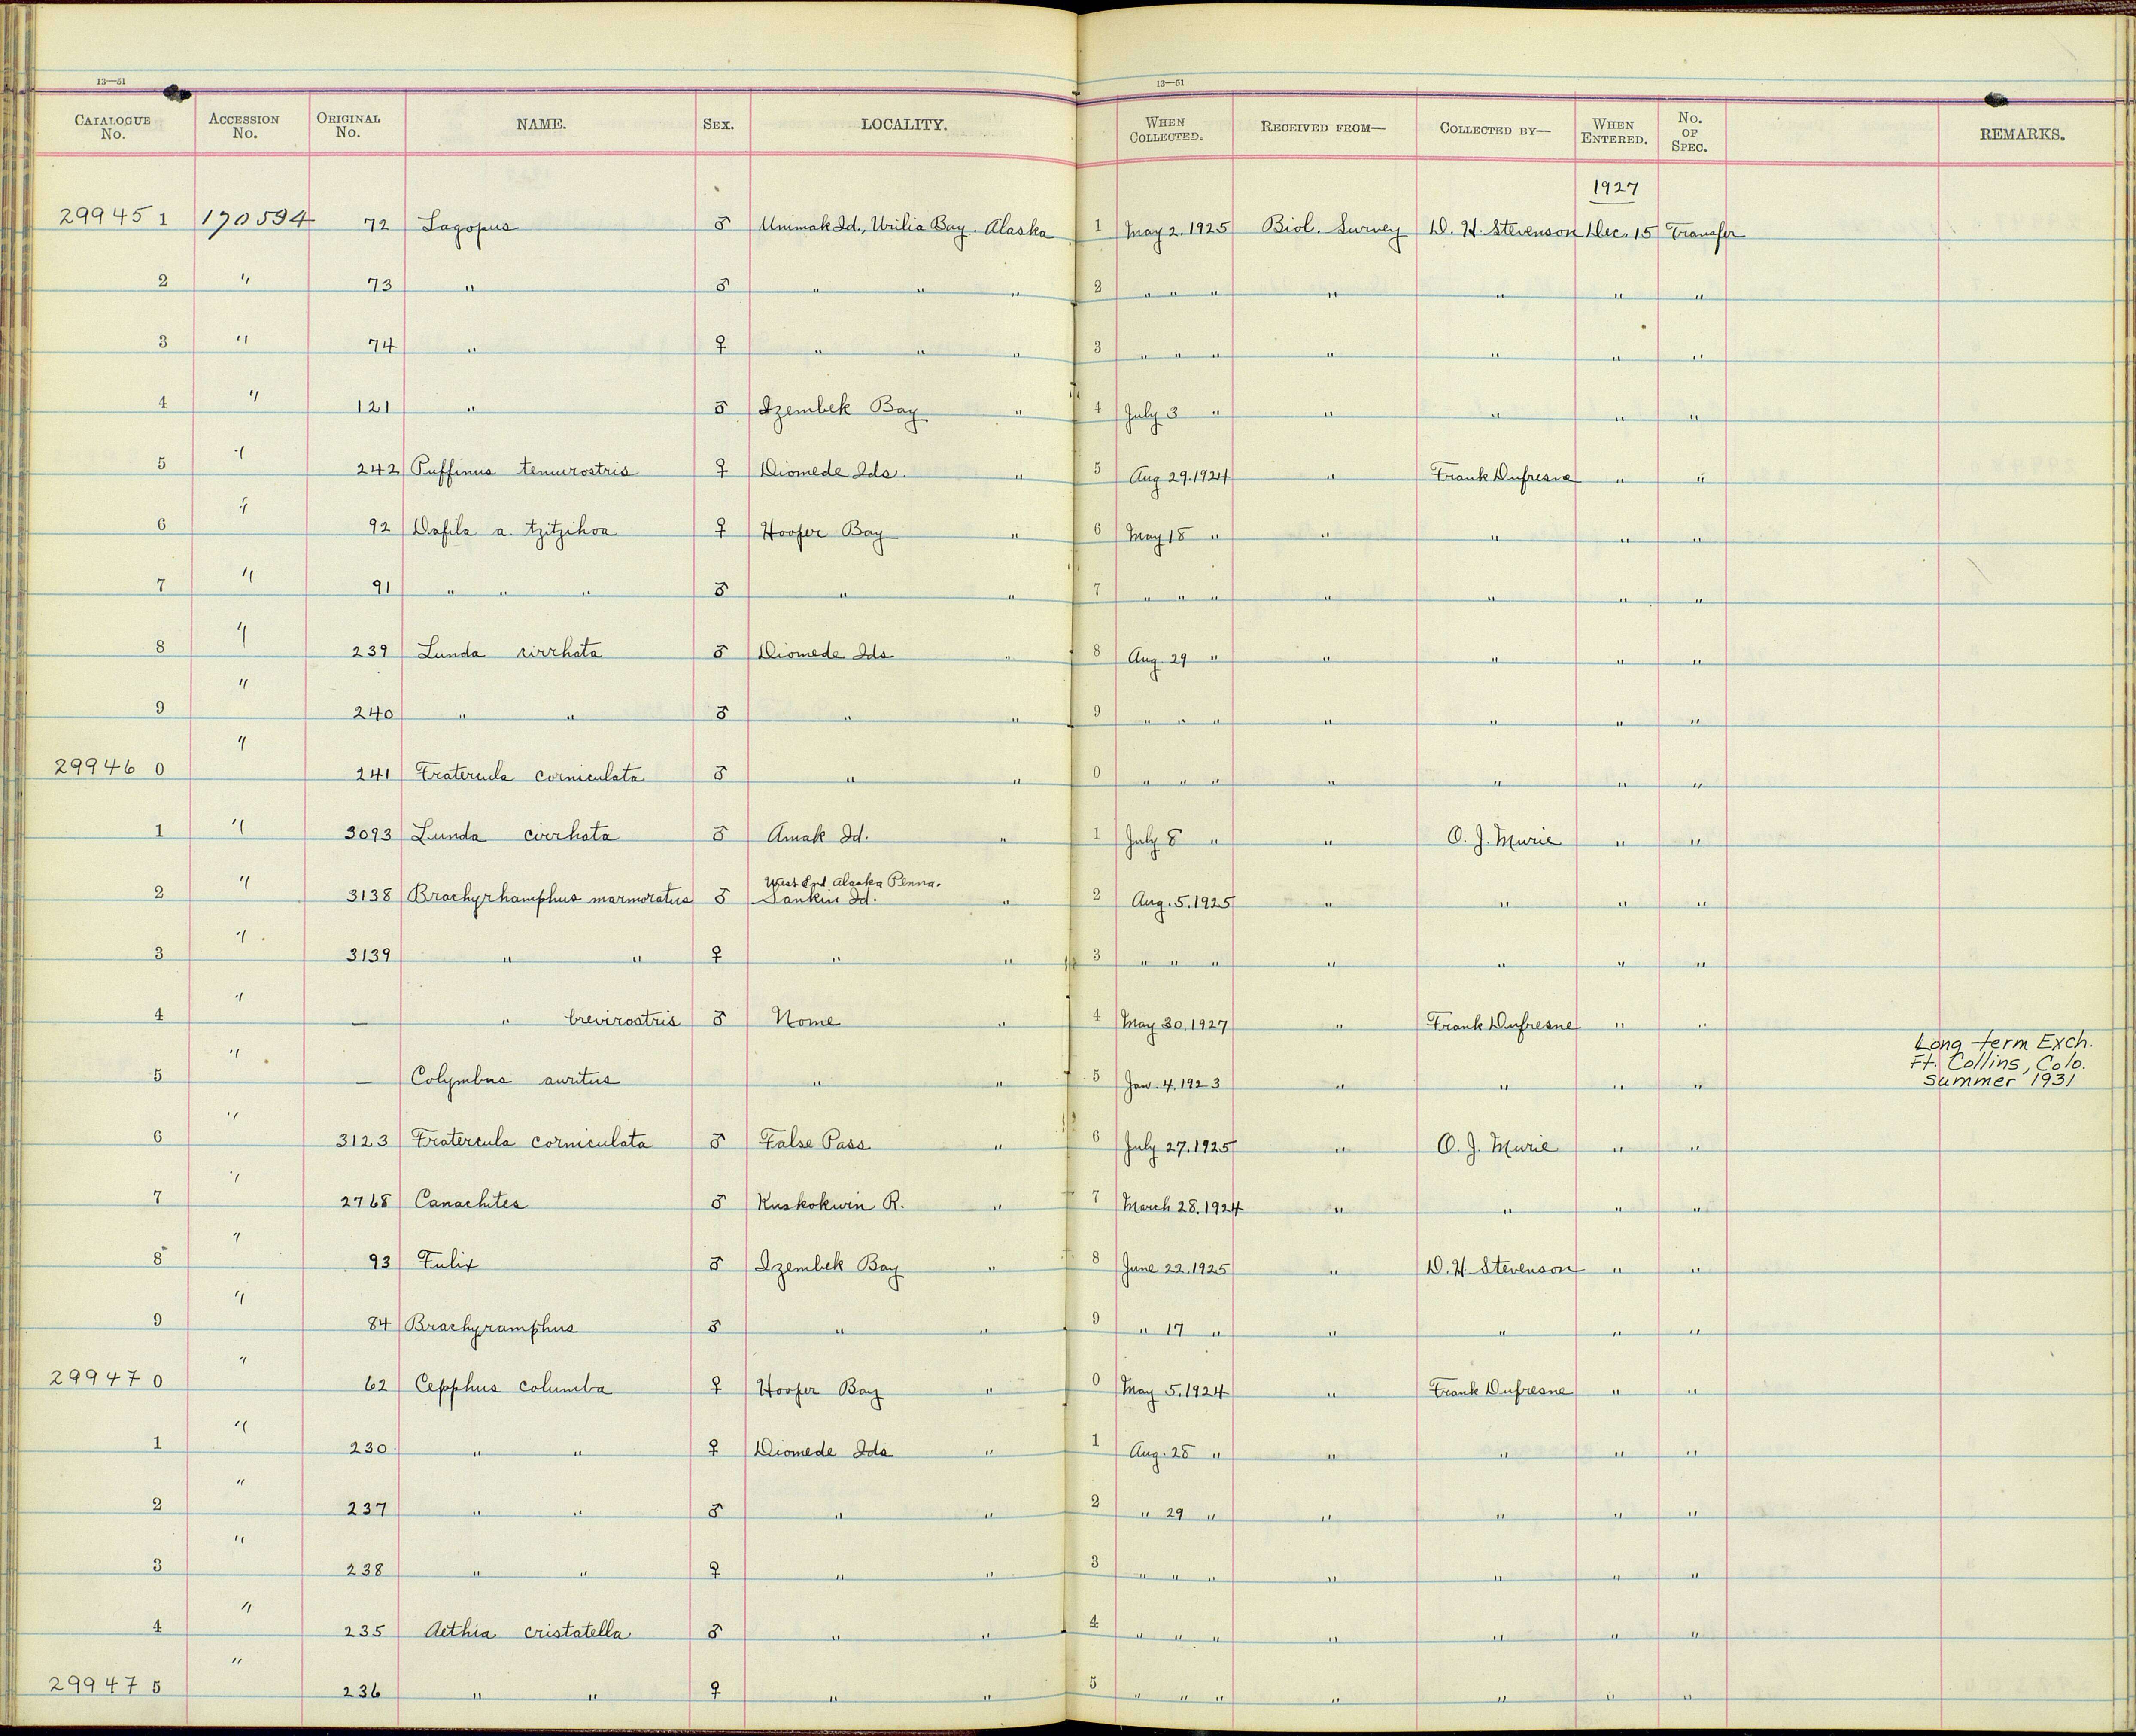 13—51 13—51
CATALOGUE No. ACCESSION No. ORIGINAL No. NAME. SEX. LOCALITY. WHEN COLLECTED. RECEIVED FROM— COLLECTED BY— WHEN ENTERED. No. OF SPEC. REMARKS.
1927
29945 1 170594 72 Lagopus ♂ Unimak Id., Urilia Bay. Alaska 1 May 2. 1925 Biol. Survey D. H. Stevenson Dec. 15 Transfer
2 " 73 " ♂ " " " 2 " " " " " " "
3 " 74 " ♀ " " " 3 " " " " " " "
4 " 121 " ♂ Izembek Bay " 4 July 3 " " " " "
5 " 242 Puffinus tenuirostris ♀ Diomede Ids. " 5 Aug 29. 1924 " Frank Dufresne " "
6 " 92 Dafila a. tzitzihoa ♀ Hooper Bay " 6 May 18 " " " " "
7 " 91 " " " ♂ " " 7 " " " " " " "
8 " 239 Lunda cirrhata ♂ Diomede Ids " 8 Aug. 29 " " " " "
9 " 240 " " ♂ " " 9 " " " " " " "
29946 0 " 241 Fratercula corniculata ♂ " " 0 " " " " " " "
1 " 3093 Lunda cirrhata ♂ Amak Id. " 1 July 8 " " O. J. Murie " "
West End Alaska Penna.
2 " 3138 Brachyrhamphus marmoratus ♂ Sankin Id. " 2 Aug. 5. 1925 " " " "
3 " 3139 " " ♀ " " 3 " " " " " " "
4 " — " brevirostris ♂ Nome " 4 May 30, 1927 " Frank Dufresne " "
5 " — Colymbus auritus " " 5 Jan. 4. 1923 " " " " Long term Exch.
Ft. Collins, Colo.
Summer 1931
6 " 3123 Fratercula corniculata ♂ False Pass " 6 July 27. 1925 " O. J. Murie " "
7 " 2768 Canachites ♂ Kuskokwin R. " 7 March 28. 1924 " " " "
8 " 93 Fulix ♂ Izembek Bay " 8 June 22. 1925 " D. H. Stevenson " "
9 " 84 Brachyramphus ♂ " " 9 " 17 " " " " "
29947 0 " 62 Cepphus columba ♀ Hooper Bay " 0 May 5. 1924 " Frank Dufresne " "
1 " 230 " " ♀ Diomede Ids " 1 Aug. 28 " " " " "
2 " 237 " " ♂ " " 2 " 29 " " " " "
3 " 238 " " ♀ " " 3 " " " " " " "
4 " 235 Aethia cristatella ♂ " " 4 " " " " " " "
29947 5 " 236 " " ♀ " " 5 " " " " " " "